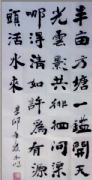 半亩方塘一鑑開天
光雲影共徘徊問渠
哪得清如許為有源
頭活水來